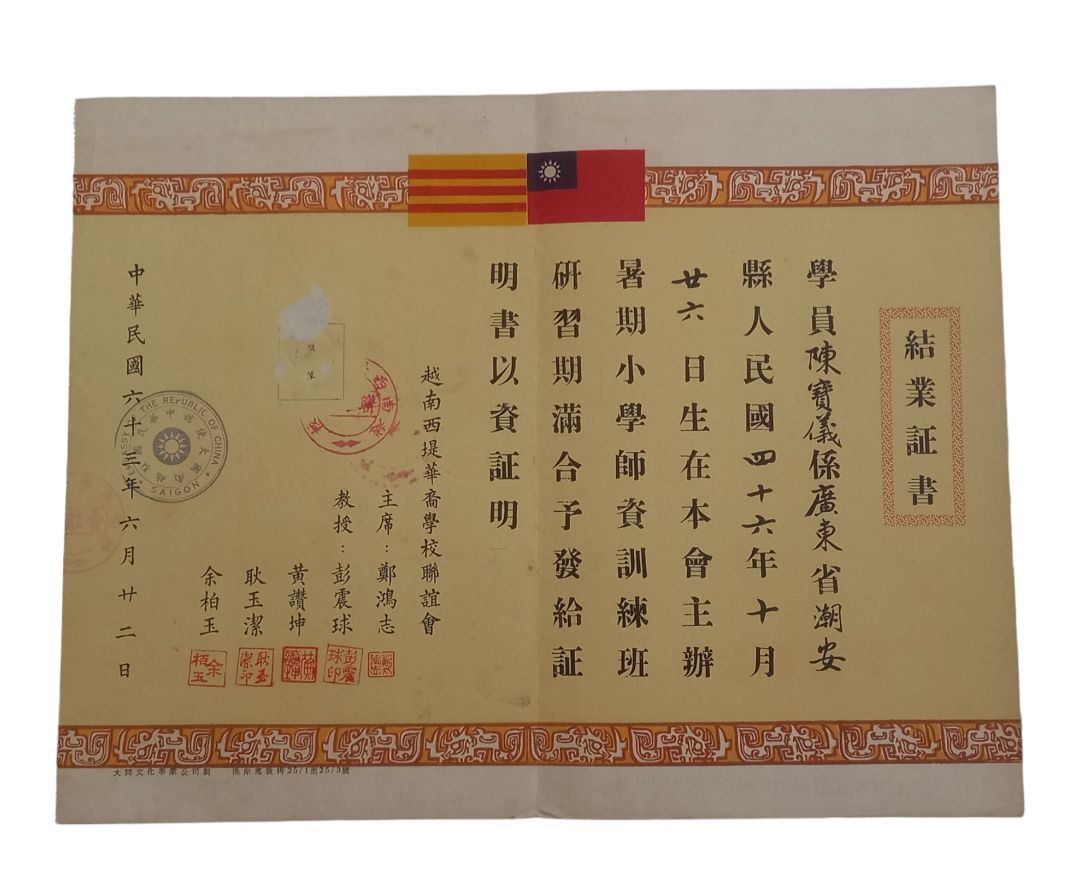 結業証書
學員陳寶儀係廣東省潮安
縣人民國四十六年十月
廿六日生在本會主辦
暑期小學師資訓練班
研習期滿合予發給証
明書以資証明
越南西堤華裔學校聯誼會
主席：鄭鴻志
教授：彭震球
彭震球印
黃讚坤
耿玉潔
耿玉潔印
余柏玉
余栢玉
中華民國六十三年六月廿二日
EMBASSY THE REPUBLIC OF CHINA
SAIGON
大同文化事業公司製
25/1至25/3號